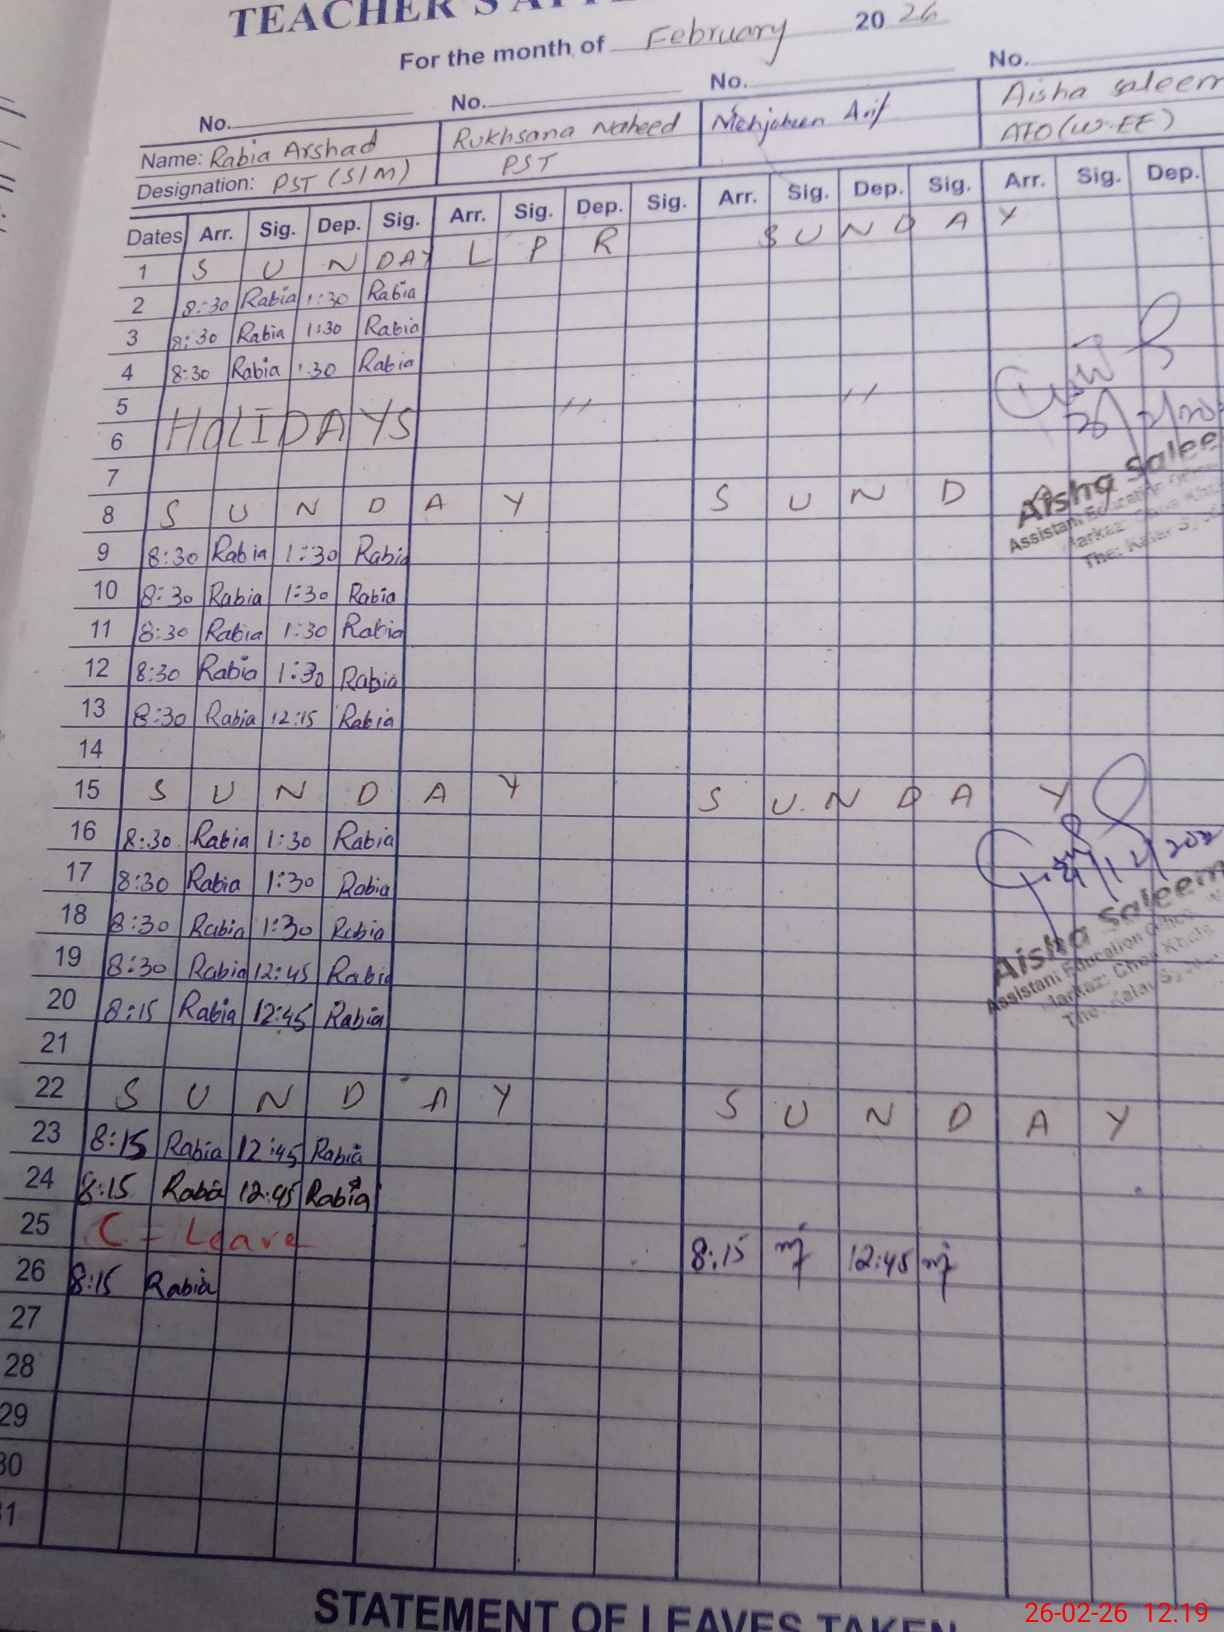 TEACHER'S
For the month of February 2026
No. No. No. No.
Name: Rabia Arshad Rukhsana Naheed Mehjabeen Arif Aisha Saleem
Designation: PST (S/M) PST AEO (W-EE)
Dates Arr. Sig. Dep. Sig. Arr. Sig. Dep. Sig. Arr. Sig. Dep. Sig. Arr. Sig. Dep.
1 S U N DAY L P R S U N D A Y
2 8:30 Rabia 1:30 Rabia
3 8:30 Rabia 1:30 Rabia
4 8:30 Rabia 1:30 Rabia
5 HOLIDAYS " "
6
7
8 S U N D A Y S U N D A
Aisha Salee
Assistant Education
Markaz
The: Kalar S
9 8:30 Rabia 1:30 Rabia
10 8:30 Rabia 1:30 Rabia
11 8:30 Rabia 1:30 Rabia
12 8:30 Rabia 1:30 Rabia
13 8:30 Rabia 12:15 Rabia
14
15 S U N D A Y S U N D A Y
16 8:30 Rabia 1:30 Rabia
17 8:30 Rabia 1:30 Rabia
18 8:30 Rabia 1:30 Rabia
Aisha Saleem
Assistant Education
Markaz: Choa Khals
The: Kalar S
19 8:30 Rabia 12:45 Rabia
20 8:15 Rabia 12:45 Rabia
21
22 S U N D A Y S U N D A Y
23 8:15 Rabia 12:45 Rabia
24 8:15 Rabia 12:45 Rabia
25 C - Leave 8:15 mj 12:45 mj
26 8:15 Rabia
27
28
29
30
31
STATEMENT OF LEAVES TAKEN
26-02-26 12:19